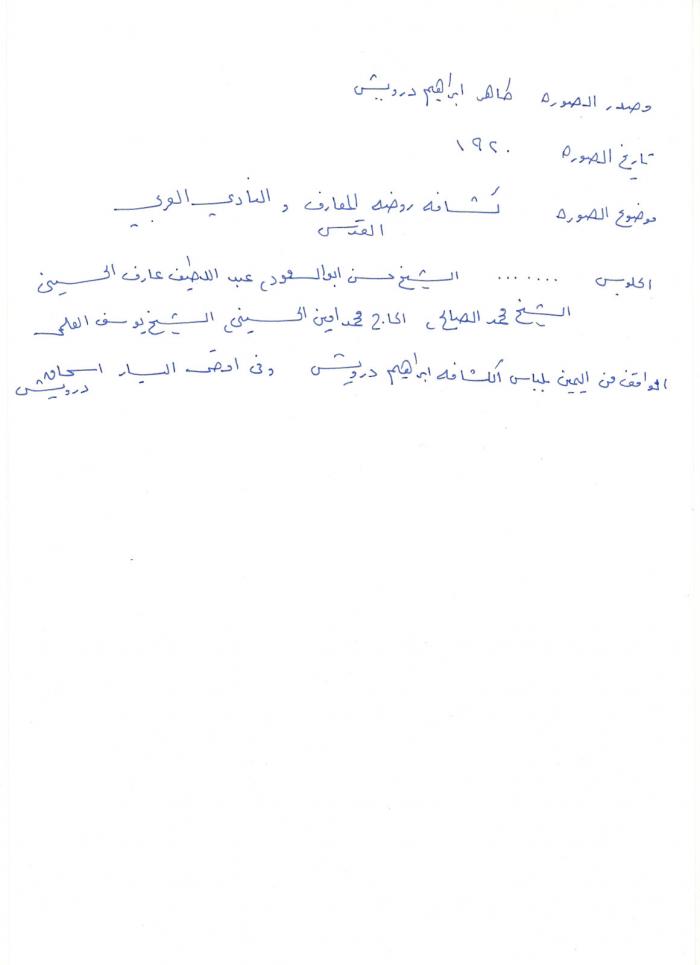 مصدر الصوره طاهر ابراهيم درويش
تاريخ الصوره ١٩٢٠
موضوع الصوره كشافه روضه المعارف و النادي العربي
القدس
الجلوس ....... الشيخ حسن ابو السعود، عبد اللطيف عارف الحسيني
الشيخ محمد الصالح، الحاج محمد امين الحسيني، الشيخ يوسف العلمي
الواقف من اليمين بلباس الكشافه ابراهيم درويش وفي اقصى اليسار اسحاق
درويش